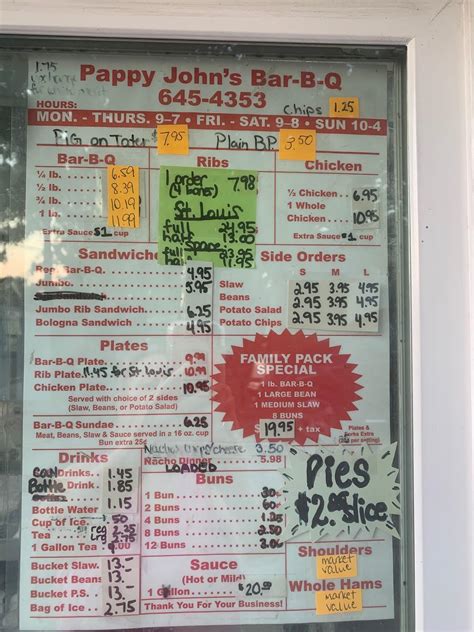 1.75
Pappy John's Bar-B-Q
645-4353
Chips 1.25
HOURS:
MON. - THURS. 9-7 • FRI. - SAT. 9-8 • SUN 10-4
PIG on Tater $7.95 Plain BP 3.50
Bar-B-Q
¼ lb. 6.59
½ lb. 8.39
¾ lb. 10.19
1 lb. 11.99
Extra Sauce $1 cup
Ribs
1 order
(4 bones) 7.98
St. Louis
full 24.95
half 13.00
full 23.95
half 11.95
Chicken
½ Chicken 6.95
1 Whole
Chicken 10.95
Extra Sauce $1 cup
Sandwiches
Reg. Bar-B-Q 4.95
Jumbo 5.95
Jumbo Rib Sandwich 6.25
Bologna Sandwich 4.95
Side Orders
S M L
Slaw 2.95 3.95 4.95
Beans 2.95 3.95 4.95
Potato Salad 2.95 3.95 4.95
Potato Chips 2.95 3.95 4.95
Plates
Bar-B-Q Plate 9.99
Rib Plate 11.45 for St. Louis 10.99
Chicken Plate 10.95
Served with choice of 2 sides
(Slaw, Beans, or Potato Salad)
Bar-B-Q Sundae 6.25
Meat, Beans, Slaw & Sauce served in a 16 oz. cup
Bun extra 25¢
FAMILY PACK
SPECIAL
1 lb. BAR-B-Q
1 LARGE BEAN
1 MEDIUM SLAW
8 BUNS
19.95 + tax
Plates &
Forks Extra
Nachos chips/cheese 3.50
Nacho Dinner 5.98
LOADED
Drinks
CAN Drinks 1.45
Bottle Drink 1.85
Bottle Water 1.15
Cup of Ice .50
Tea
1 Gallon Tea
Bucket Slaw 13.-
Bucket Beans 13.-
Bucket P.S. 13.-
Bag of Ice 2.75
Buns
1 Bun .30
2 Buns .60
4 Buns 1.25
8 Buns 2.50
12 Buns 3.00
Sauce
(Hot or Mild)
1 Gallon $20.00
Thank You For Your Business!
Pies
$2.00 Slice
Shoulders
market
value
Whole Hams
market
value